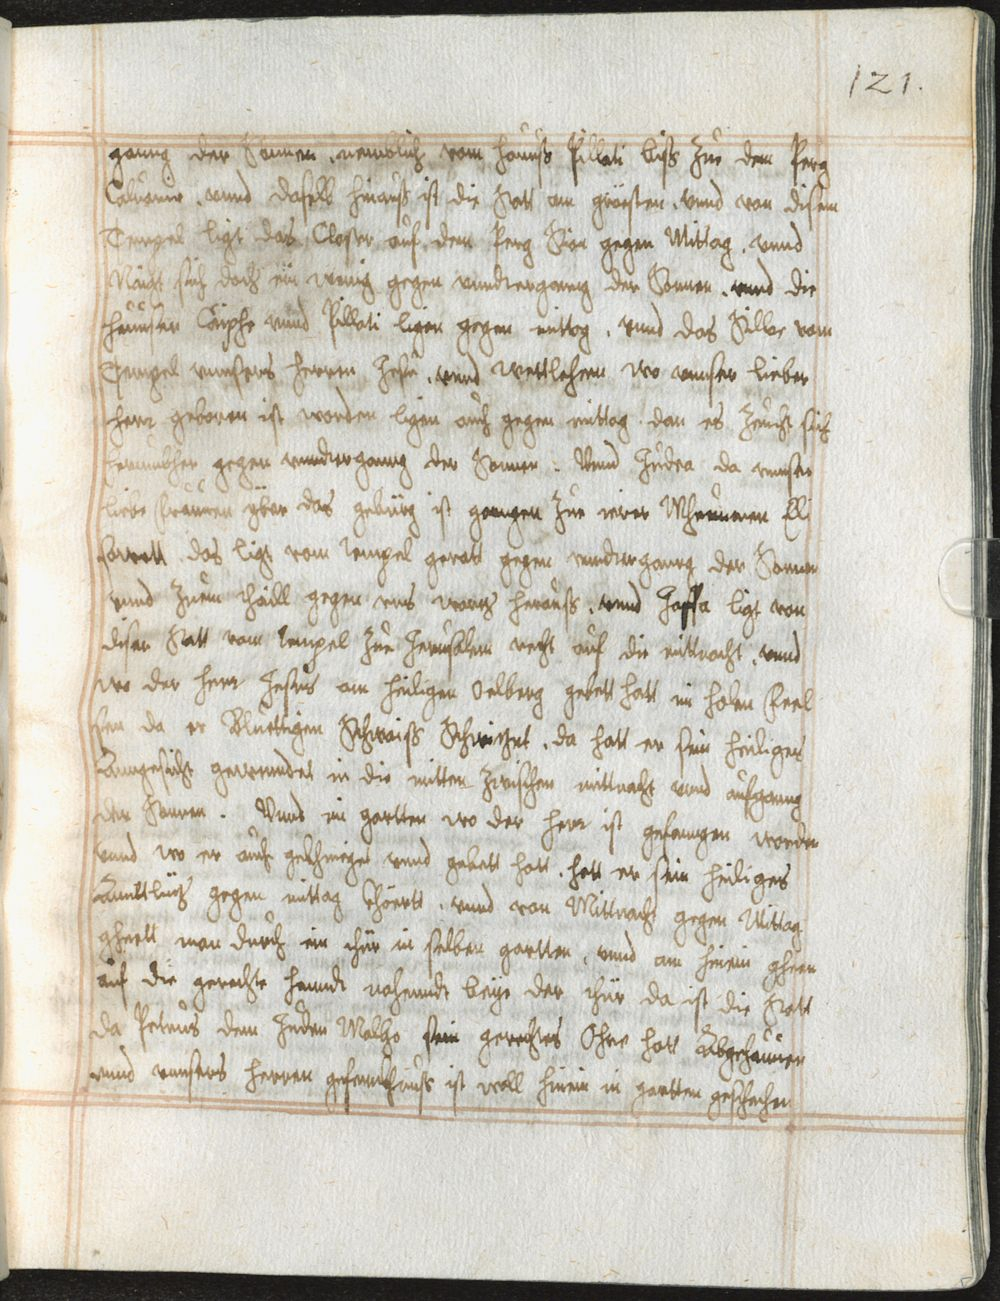 121.
ganng der Sonnen, nemblich vom hauß Pillati biß zue dem Perg
Caluarie, vnnd daselb hinauß ist die Statt am grösten, vnnd von disem
Tempel ligt das Closter auf dem Perg Sion gegen Mittag, vnnd
Naigt sich doch ein wenig gegen vnndterganng der Sonnen, vnnd die
heüußer Caiphe vnnd Pillati ligen gegen mittag, vnnd das Silloe vom
Tempel vnnsers herren Jesu, vnnd Bettlehem wo vnnser lieber
herr geboren ist worden ligen auch gegen mittag dan es zeucht sich
herumbher gegen vnndterganng der Sonnen. Vnnd Judea da vnnser
liebe Frauuen yber das gebürg ist ganngen zue irer Muemen Eli
sabett das ligt vom tempel geratt gegen vnndterganng der Sonnen
vnnd zuem thaill gegen vns werts herauß, vnnd Jaffa ligt von
diser Statt vom tempel zue Jerusalem recht auf die mittnacht, vnnd
wo der herr Jesus am heiligen Oelberg gebett hatt im holen Feel
sen da er Bluettigen Schwaiß Schwitzet, da hatt er sein heiliges
Anngesicht gewenndet in die mitten zwischen mittnacht vnnd aufganng
der Sonnen. Vnnd im gartten wo der herr ist gefanngen worden
vnnd wo er auch gebett hatt, hatt er sein heiliges
Anntlitz gegen mittag khert, vnnd von Mittnacht gegen Mittag
gheet man durch ein thür in selben gartten, vnnd am hinein gheen
auf die gerechte hanndt nahenndt beye der thür da ist die Statt
da Petrus dem Juden Malcho sein gerechtes Ohre hatt Abgehauuen
vnnd vnnsers herren gefenckhnuß ist woll hinein in gartten geschechen